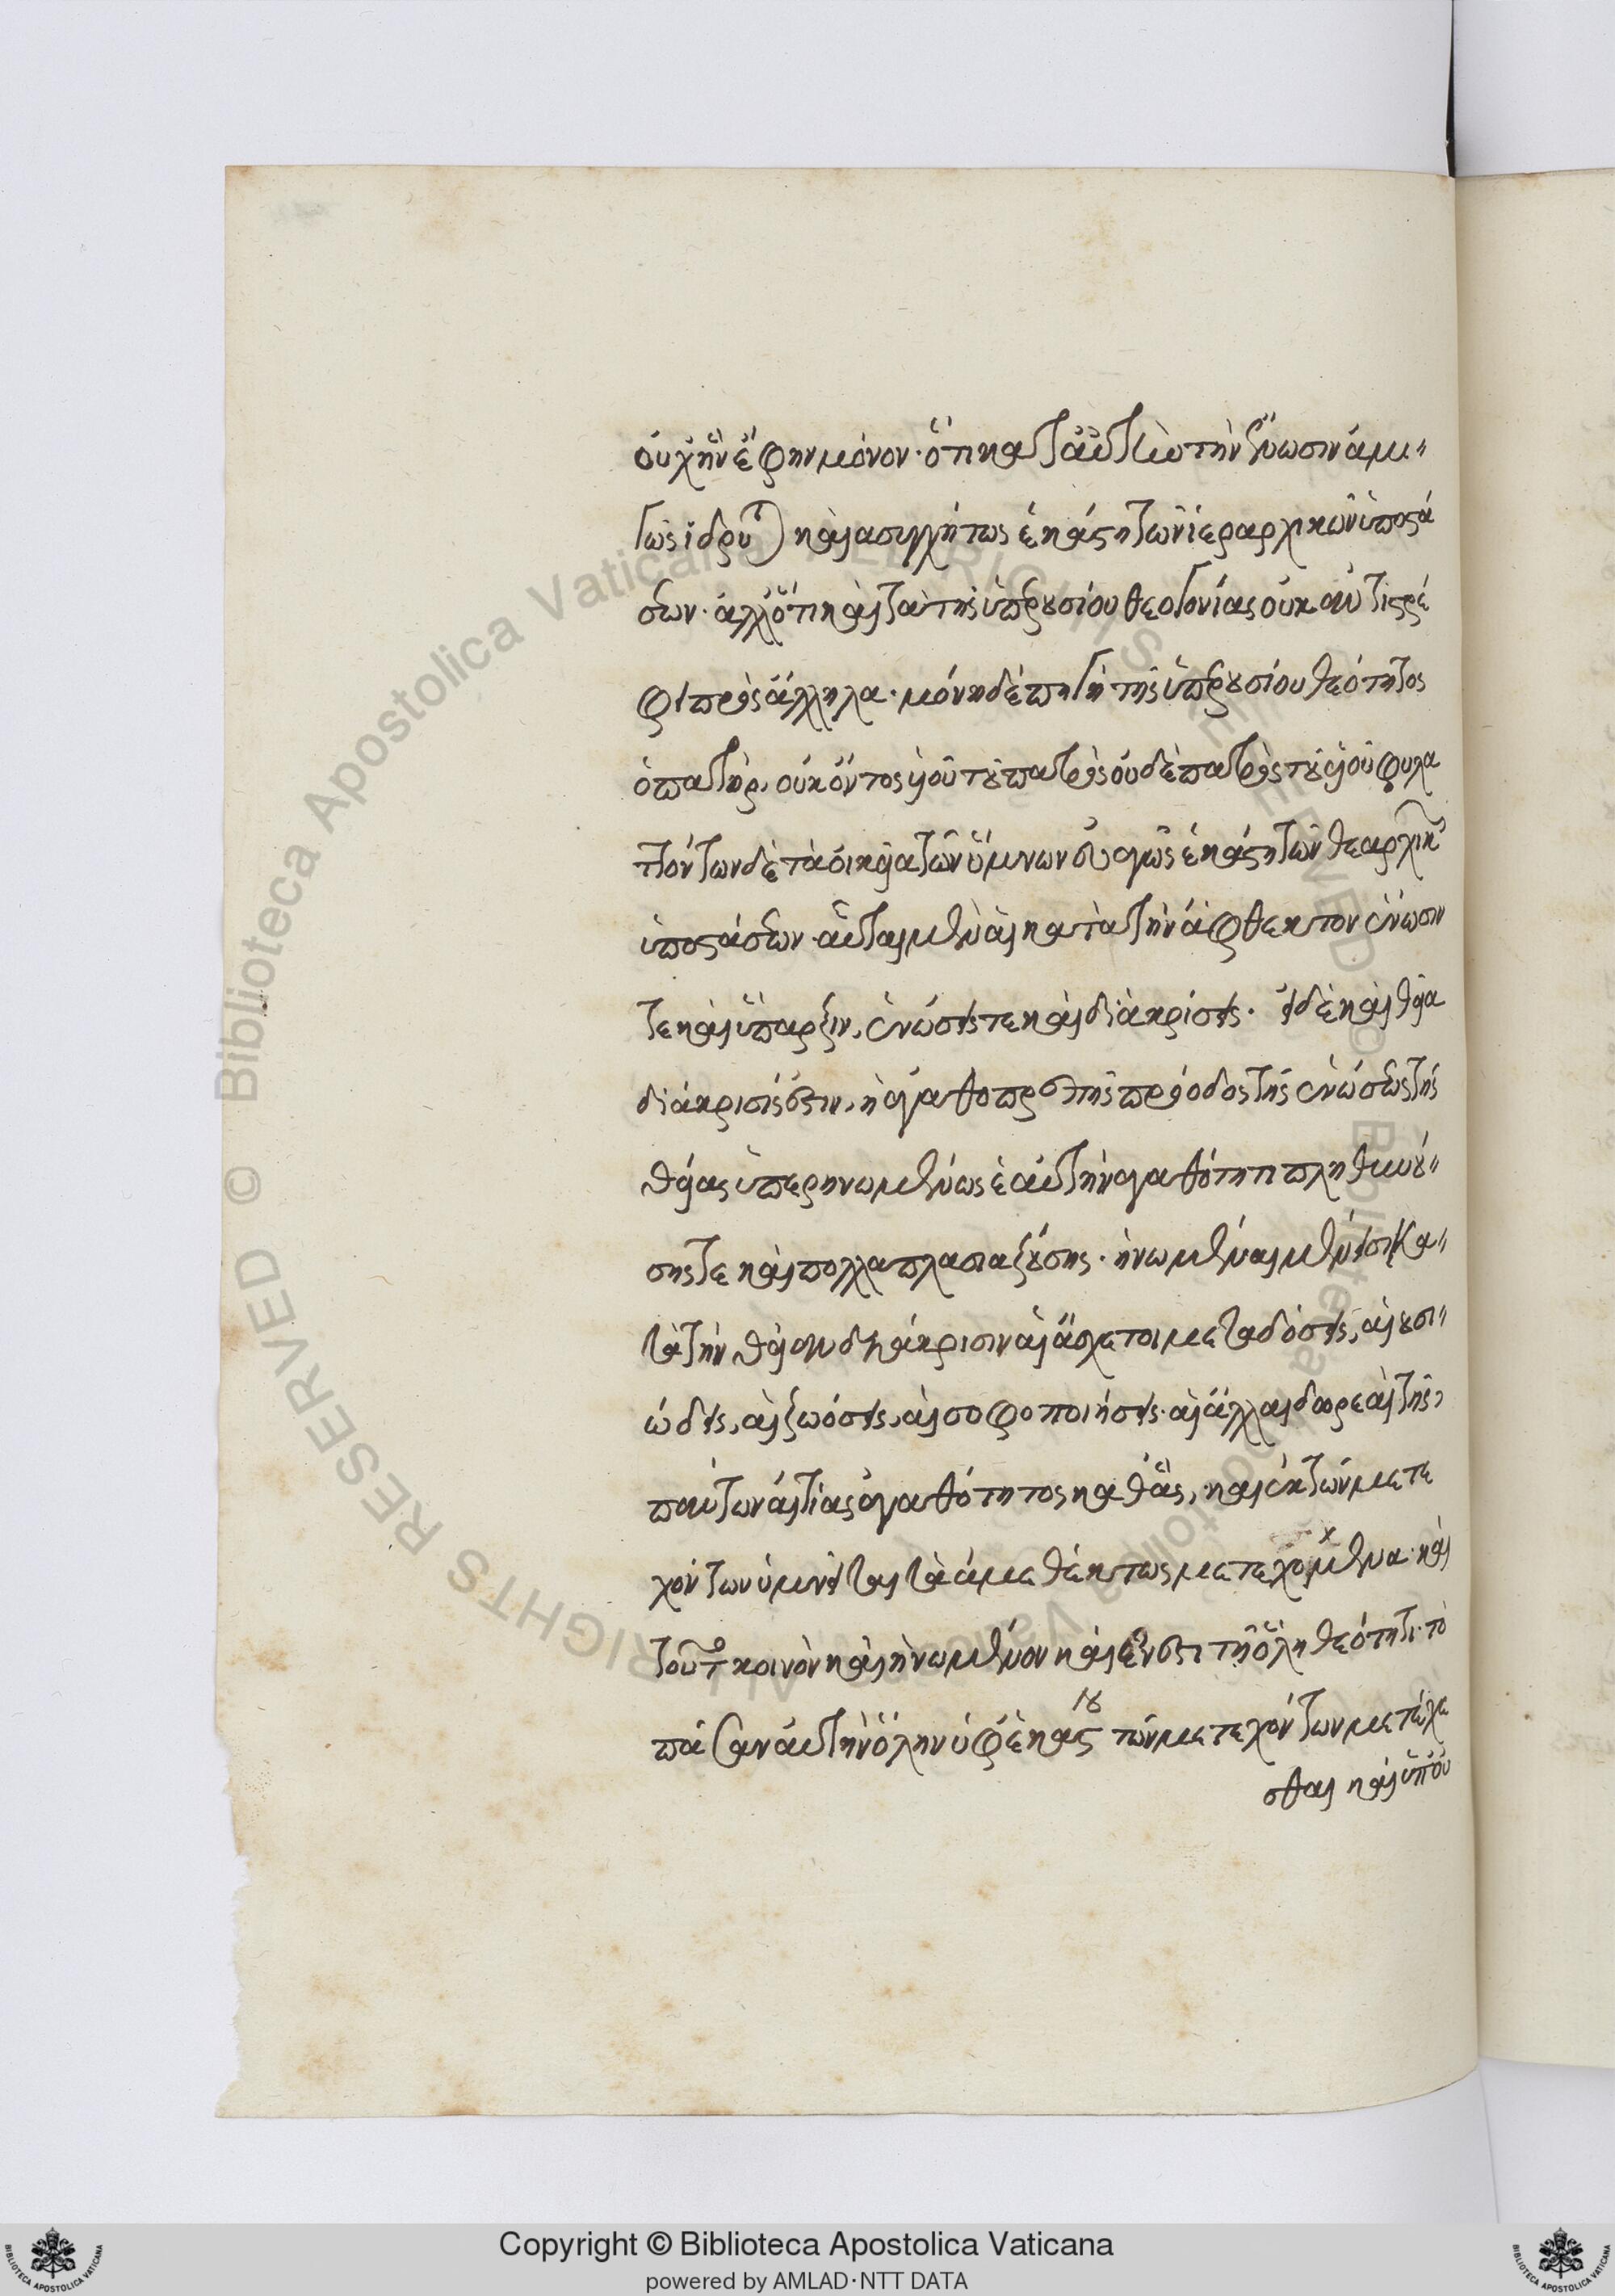 οὐχ ἣν ἔφην μόνον· ὅτι κατ' αὐτὴν τὴν ἕνωσιν ἀμι
γῶς ἵδρυται καὶ ἀσυγχύτως ἑκάστη τῶν ἱεραρχικῶν ὑποστά
σεων· ἀλλ' ὅτι καὶ τὰ τῆς ὑπερουσίου θεογονίας οὐκ ἀντιστρέ
φει πρὸς ἄλληλα· μόνη δὲ πηγὴ τῆς ὑπερουσίου θεότητος
ὁ πατήρ, οὐκ ὄντος υἱοῦ τοῦ πατρὸς οὐδὲ πατρὸς τοῦ υἱοῦ φυλα
ττόντων δὲ τὰ οἰκεῖα τῶν ὕμνων εὐαγῶς ἑκάστη τῶν θεαρχικῶν
ὑποστάσεων· αὗται μὲν αἱ κατὰ τὴν ἄφθεκτον ἕνωσιν
τε καὶ ὕπαρξιν, ἑνώσεις τε καὶ διακρίσεις· εἰ δὲ καὶ θεία
διάκρισίς ἐστιν, ἡ ἀγαθοπρεπὴς πρόοδος τῆς ἑνώσεως τῆς
θείας ὑπερηνωμένως ἑαυτὴν ἀγαθότητι πληθυνού
σης τε καὶ πολλαπλασιαζούσης· ἡνωμέναι μέν εἰσι κα
τὰ τὴν θείαν διάκρισιν αἱ ἄσχετοι μεταδόσεις, αἱ οὐσι
ώσεις, αἱ ζωώσεις, αἱ σοφοποιήσεις· αἱ ἄλλαι δωρεαὶ τῆς
πάντων αἰτίας ἀγαθότητος καθ' ἃς, καὶ ἐκ τῶν μετε
χόντων ὑμνεῖται τὰ ἀμεθέκτως μετεχόμενα· καὶ
τοῦτο κοινὸν καὶ ἡνωμένον καὶ ἕν ἐστι τῇ ὅλῃ θεότητι· τὸ
πᾶσαν αὐτὴν ὅλην ὑφ' ἑκάστου τῶν μετεχόντων μετέχε
σθαι καὶ ὑπ' οὐ